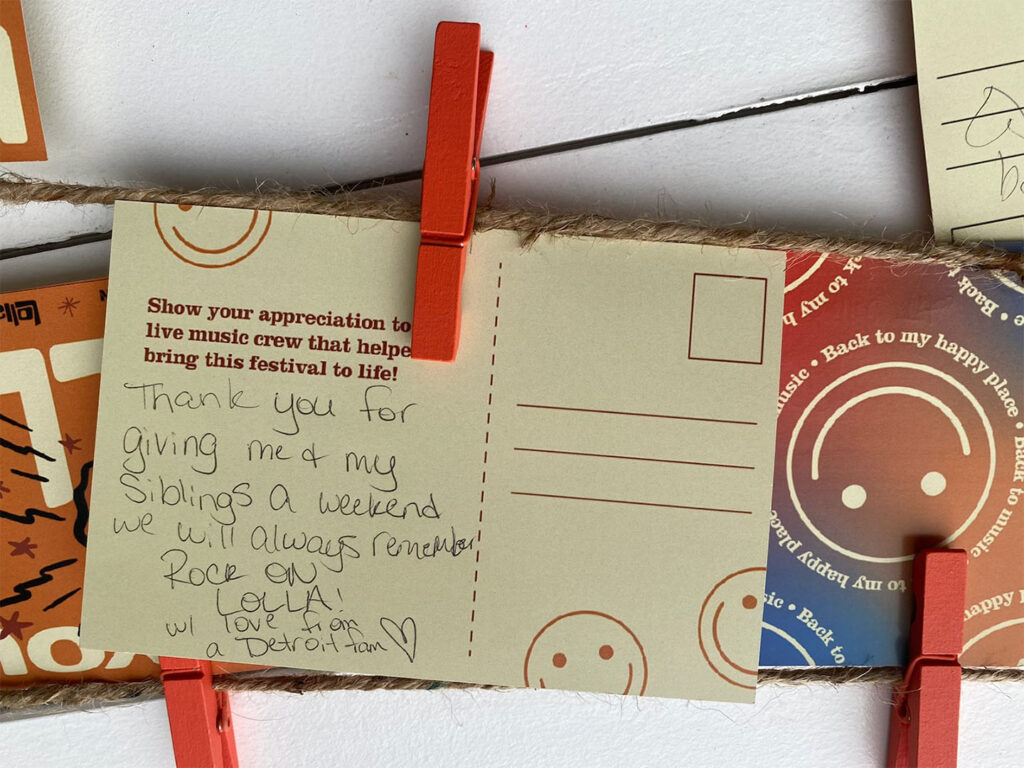 Show your appreciation to
live music crew that helpe
bring this festival to life!
Thank you for
giving me & my
Siblings a weekend
we will always remember
Rock ON
LOLLA!
w/ love from
a Detroit fam
Back to my happy place • Back to music
to my happy place
music •
ck to my h
• Back
sic • Back to
happy p
lolla